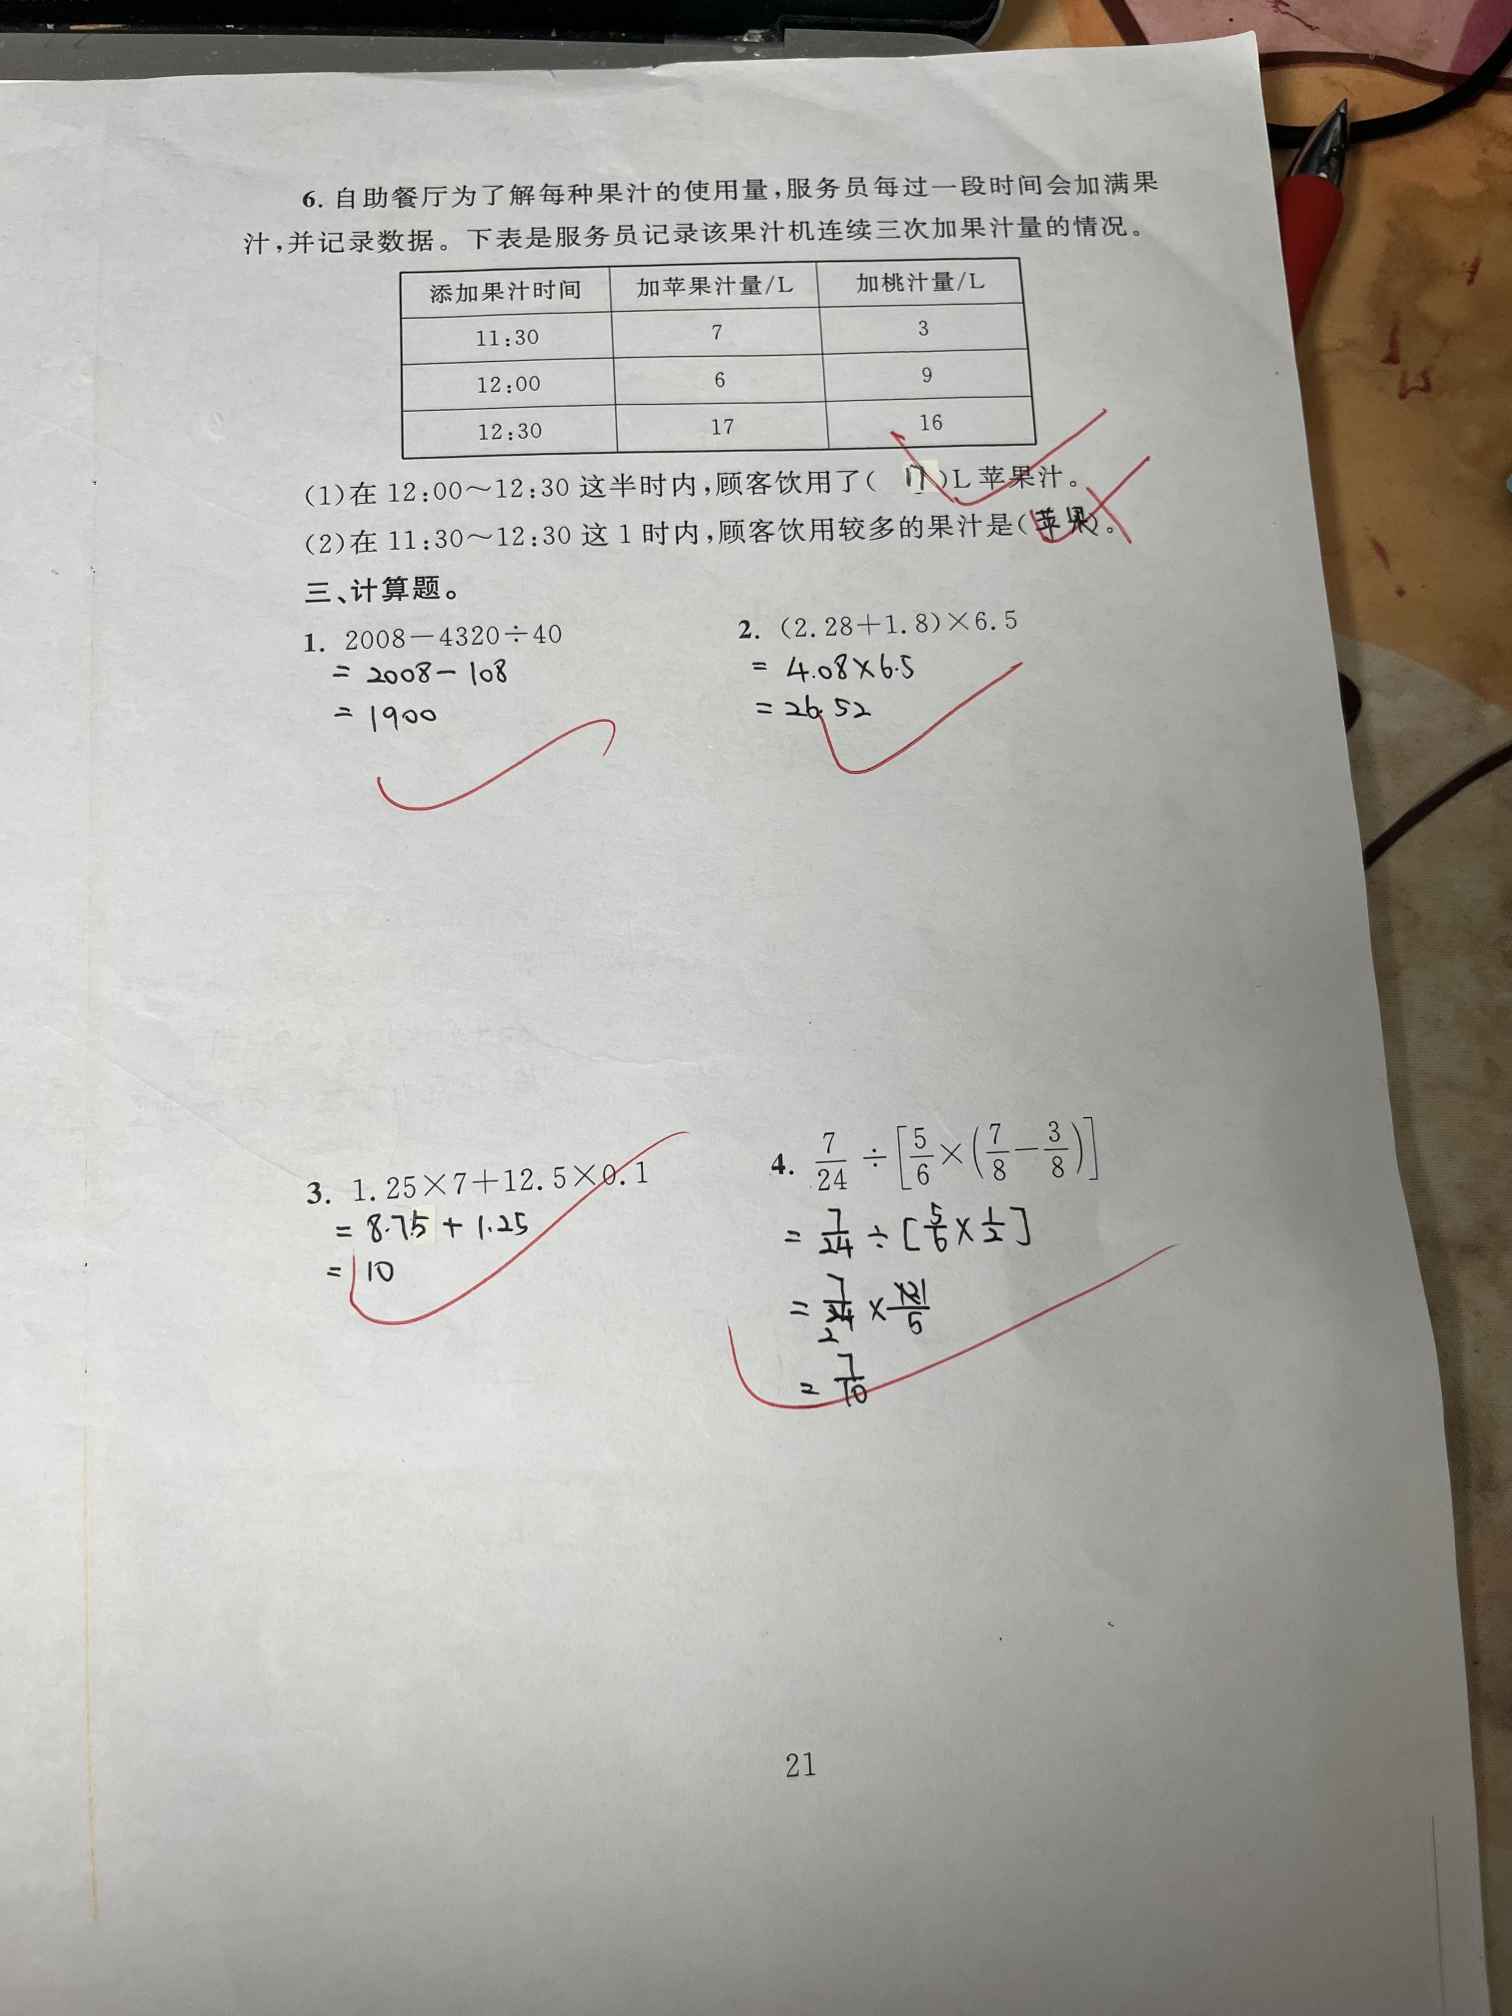 6. 自助餐厅为了解每种果汁的使用量,服务员每过一段时间会加满果
汁,并记录数据。下表是服务员记录该果汁机连续三次加果汁量的情况。
添加果汁时间 加苹果汁量/L 加桃汁量/L
11:30 7 3
12:00 6 9
12:30 17 16
(1)在 12:00～12:30 这半时内,顾客饮用了( 17 )L 苹果汁。
(2)在 11:30～12:30 这 1 时内,顾客饮用较多的果汁是(苹果)。
三、计算题。
1. 2008－4320÷40
= 2008 - 108
= 1900
2. (2.28＋1.8)×6.5
= 4.08×6.5
= 26.52
3. 1.25×7＋12.5×0.1
= 8.75 + 1.25
= 10
4. 7/24 ÷[5/6×(7/8－3/8)]
= 7/24 ÷ [5/6 × 1/2]
= 7/24 × /5
2
= 7/10
21